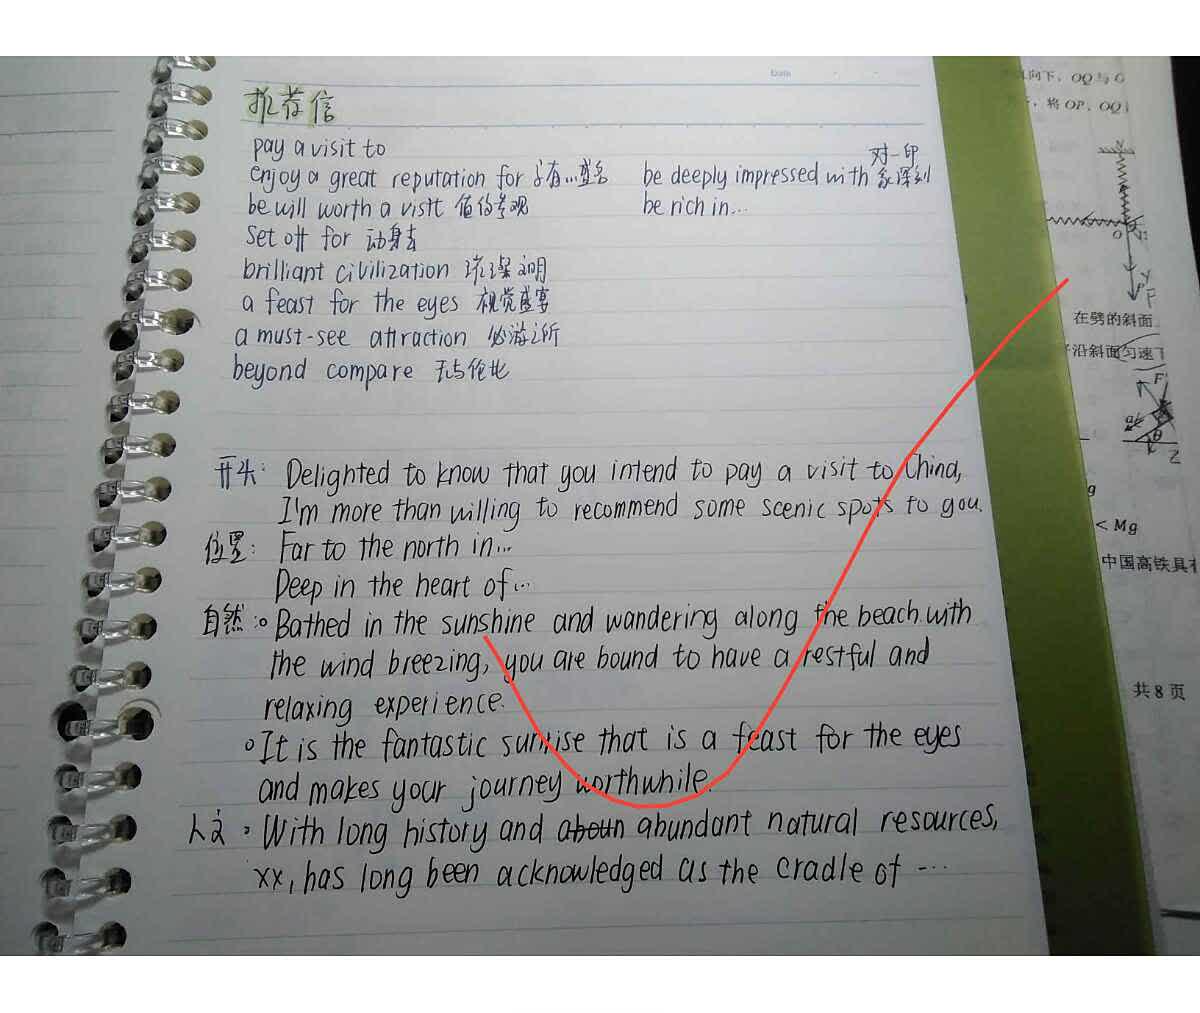 Date
推荐信
pay a visit to
enjoy a great reputation for 享有…盛名
be deeply impressed with 对…印象深刻
be will worth a visit 值得参观
be rich in...
Set off for 动身去
brilliant civilization 璀璨文明
a feast for the eyes 视觉盛宴
a must-see attraction 必游之所
beyond compare 无与伦比
开头: Delighted to know that you intend to pay a visit to China,
I'm more than willing to recommend some scenic spots to you.
位置: Far to the north in...
Deep in the heart of...
自然: Bathed in the sunshine and wandering along the beach with
the wind breezing, you are bound to have a restful and
relaxing experience.
It is the fantastic sunrise that is a feast for the eyes
and makes your journey worthwhile.
人文 With long history and aboun abundant natural resources,
xx, has long been acknowledged as the cradle of ...
向下，OQ与O
，将OP、OQ
O
F
在劈的斜面
沿斜面匀速下
F
θ
g
< Mg
中国高铁具有
共8页